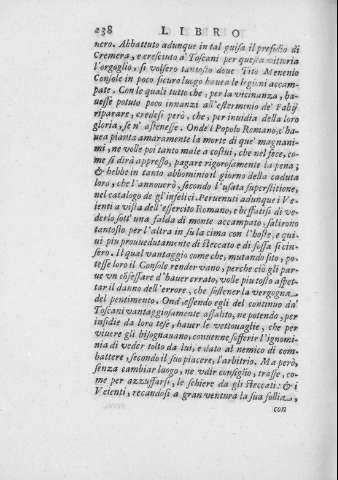 238 LIBRO
nero. Abbattuto adunque in tal guisa il presidio di
Cremera, e cresciuto a' Toscani per questa vittoria
l'orgoglio, si volsero tantosto doue Tito Menenio
Console in poco sicuro luogo hauea le legioni accam-
pate. Con lo quali tutto che, per la vicinanza, ha-
uesse potuto poco innanzi all'estermenio de' Fabij
riparare, credesi però, che, per inuidia della loro
gloria, se n'astenesse. Onde'l Popolo Romano, c'ha-
uea pianta amaramente la morte di que' magnani-
mi, ne volle poi tanto male a costui, che nel fece, co-
me si dirà appresso, pagare rigorosamente la pena;
& hebbe in tanto abbominio il giorno della caduta
loro, che l'annouerò, secondo l'usata superstitione,
nel catalogo de gl'infelici. Peruenuti adunque i Ve-
ienti a vista dell'essercito Romano, e beffatisi di ve-
derlo sott'una falda di monte accampato, salirono
tantosto per l'altra in su la cima con l'hoste, e qui-
ui più prouedutamente di steccato e di fossa si cin-
sero. Il qual vantaggio come che, mutando sito, po-
tesse loro il Console render vano, perche ciò gli par-
ue vn cōfessare d'hauer errato, volle più tosto aspet-
tar il danno dell'errore, che sostener la vergogna
del pentimento. Ond'essendo egli del continuo da'
Toscani vantaggiosamente assalito, ne potendo, per
insidie da loro tese, hauer le vettouaglie, che per
viuere gli bisognauano, conuenne sofferir l'ignomi-
nia di veder tolto da lui, e dato al nemico di com-
battere, secondo il suo piacere, l'arbitrio. Ma però,
senza cambiar luogo, ne vdir consiglio, trasse, co-
me per azzuffarsi, le schiere da gli steccati: & i
Veienti, recandosi a gran ventura la sua follia,
con